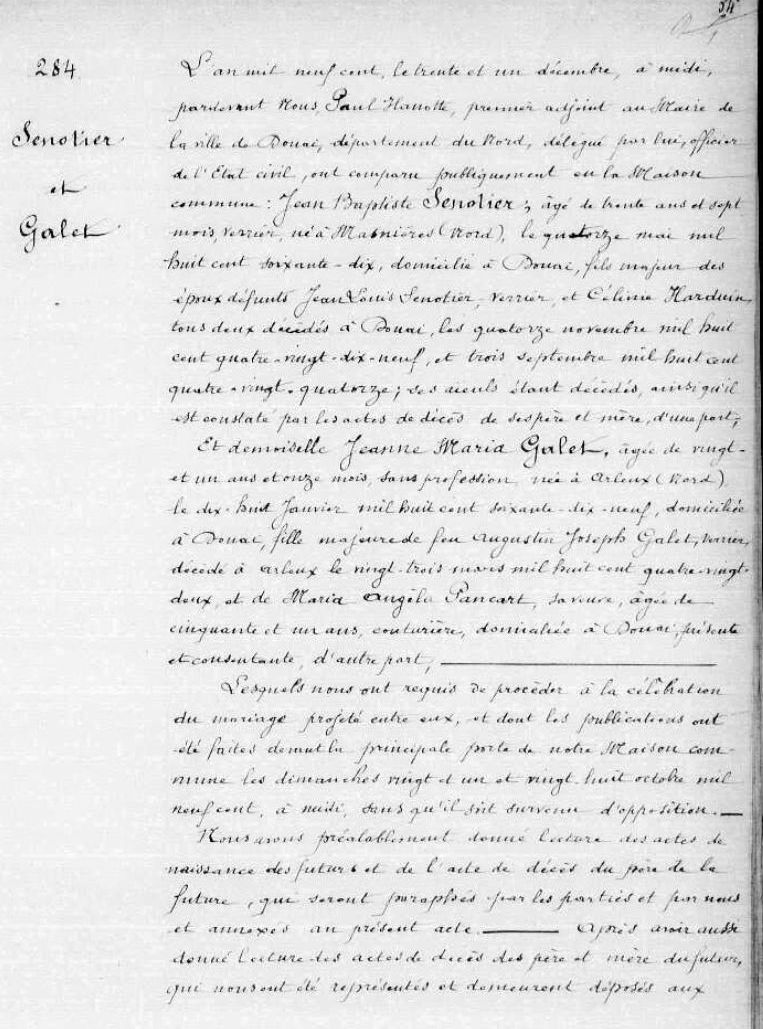 54
284
Senotier
et
Galet
L'an mil neuf cent, le trente et un décembre, à midi,
pardevant Nous, Paul Hanotte, premier adjoint au Maire de
la ville de Douai, département du Nord, délégué par lui, officier
de l'Etat civil, ont comparu publiquement en la Maison
commune : Jean Baptiste Senotier, âgé de trente ans et sept
mois, verrier, né à Masnières (Nord), le quatorze mai mil
huit cent soixante-dix, domicilié à Douai, fils majeur des
époux défunts Jean Louis Senotier, verrier, et Célinie Harduin,
tous deux décédés à Douai, les quatorze novembre mil huit
cent quatre-vingt-dix-neuf, et trois septembre mil huit cent
quatre-vingt-quatorze ; ses aïeuls étant décédés, ainsi qu'il
est constaté par les actes de décès de ses père et mère, d'une part,
Et demoiselle Jeanne Maria Galet, âgée de vingt-
et un ans et onze mois, sans profession, née à Arleux (Nord)
le dix-huit Janvier mil huit cent soixante-dix-neuf, domiciliée
à Douai, fille majeure de feu Augustin Joseph Galet, verrier,
décédé à Arleux le vingt-trois mars mil huit cent quatre-vingt-
deux, et de Maria Angèla Pancart, sa veuve, âgée de
cinquante et un ans, couturière, domiciliée à Douai, présente
et consentante, d'autre part,
Lesquels nous ont requis de procéder à la célébration
du mariage projeté entre eux, et dont les publications ont
été faites devant la principale porte de notre Maison com-
mune les dimanches vingt et un et vingt-huit octobre mil
neuf cent, à midi, sans qu'il soit survenu d'opposition.
Nous avons préalablement donné lecture des actes de
naissance des futurs et de l'acte de décès du père de la
future, qui seront paraphés par les parties et par nous
et annexés au présent acte. Après avoir aussi
donné lecture des actes de décès des père et mère du futur,
qui nous ont été représentés et demeurent déposés aux